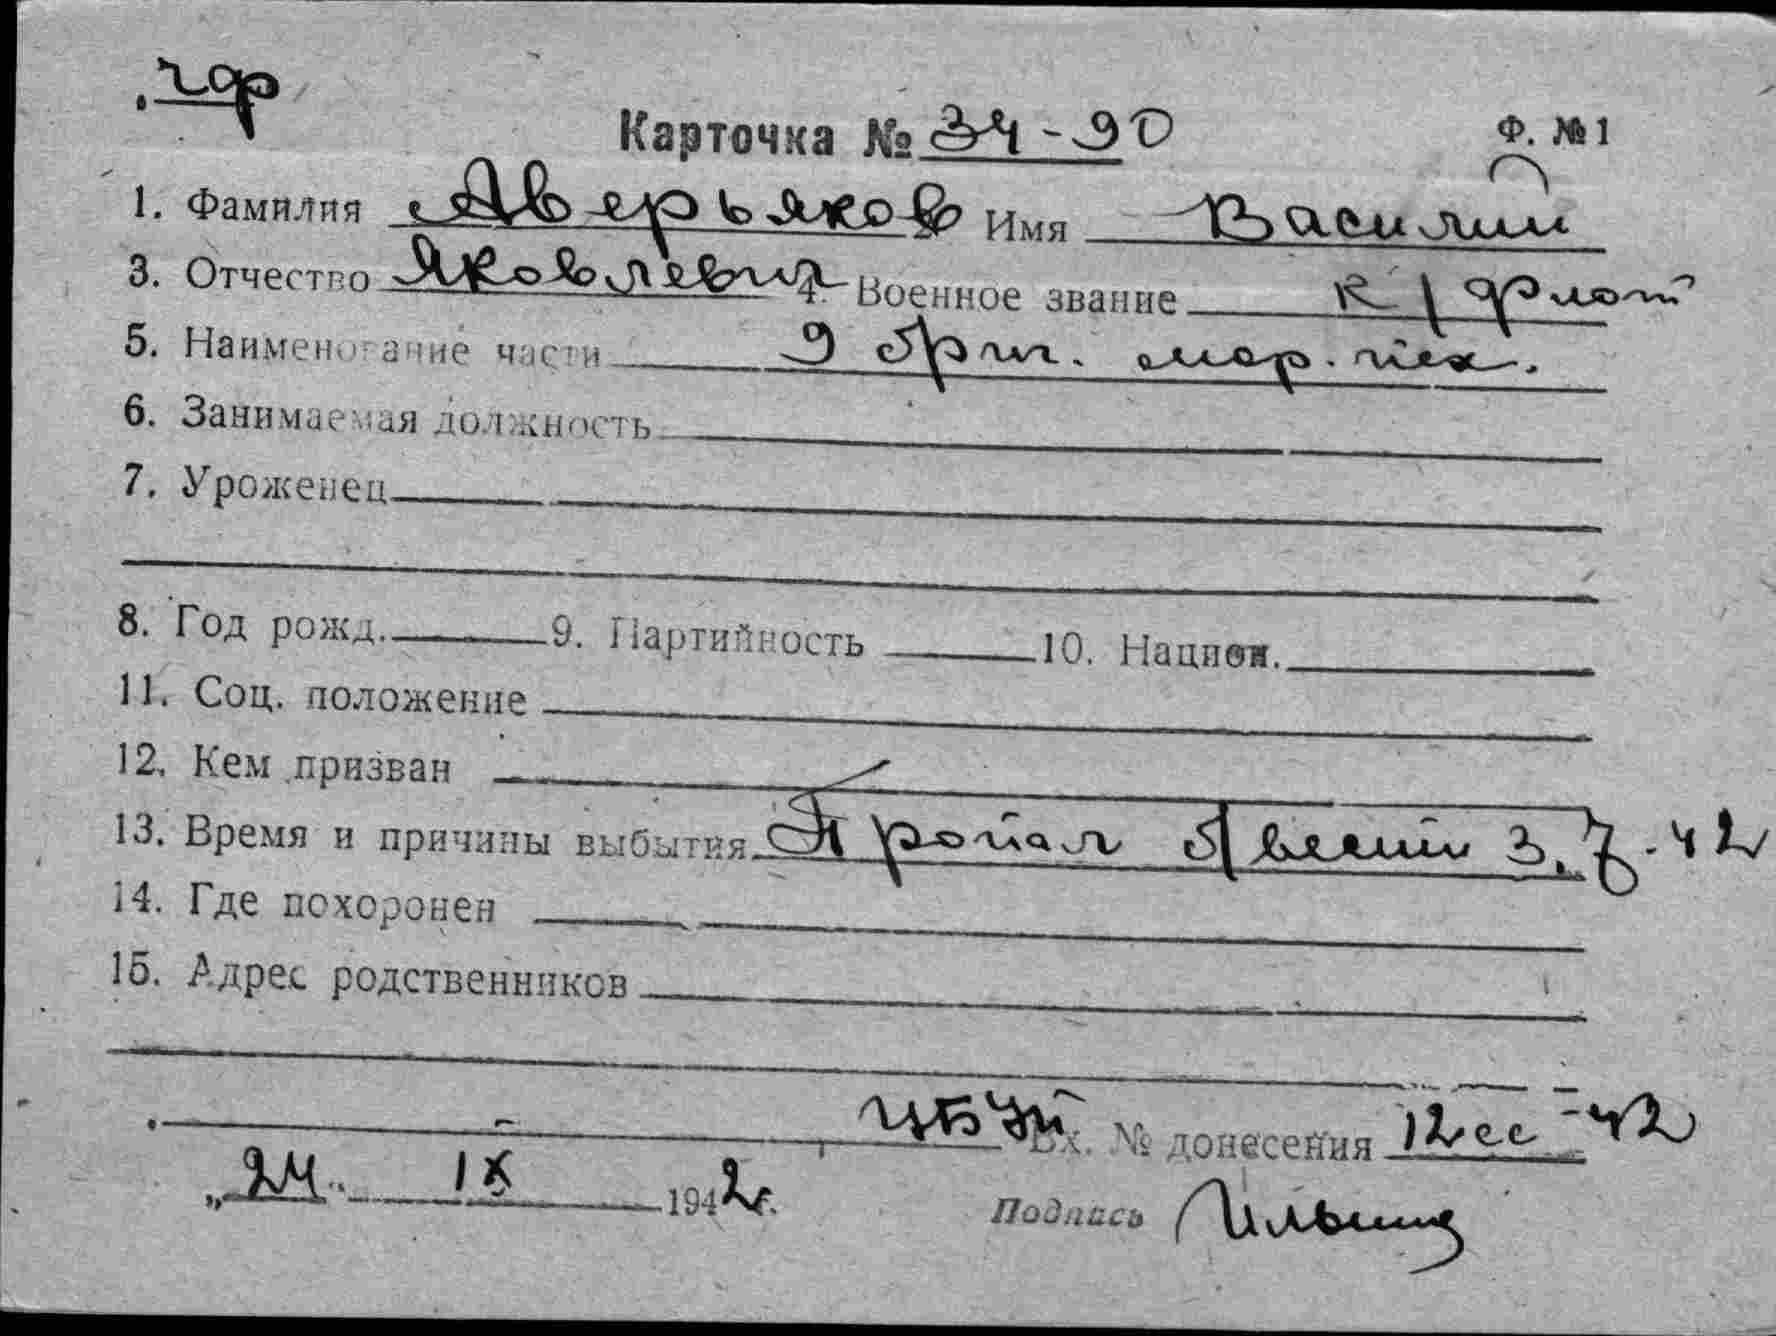 чф
Карточка № 34-90 Ф. № 1
1. Фамилия Аверьяков Имя Василий
3. Отчество Яковлевич 4. Военное звание к/флот
5. Наименование части 9 бриг. мор. пех.
6. Занимаемая должность
7. Уроженец
8. Год рожд. 9. Партийность 10. Национ.
11. Соц. положение
12. Кем призван
13. Время и причины выбытия Пропал б/вести 3.7.42
14. Где похоронен
15. Адрес родственников
Вх. № донесения 12сс-42
„24“ IX 1942г. Подпись